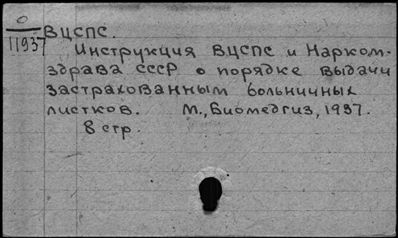 0
11937
ВЦСПС.
Инструкция ВЦСПС и Нарком-
здрава СССР о порядке выдачи
застрахованным больничных
листков. М., Биомедгиз, 1937.
8 стр.